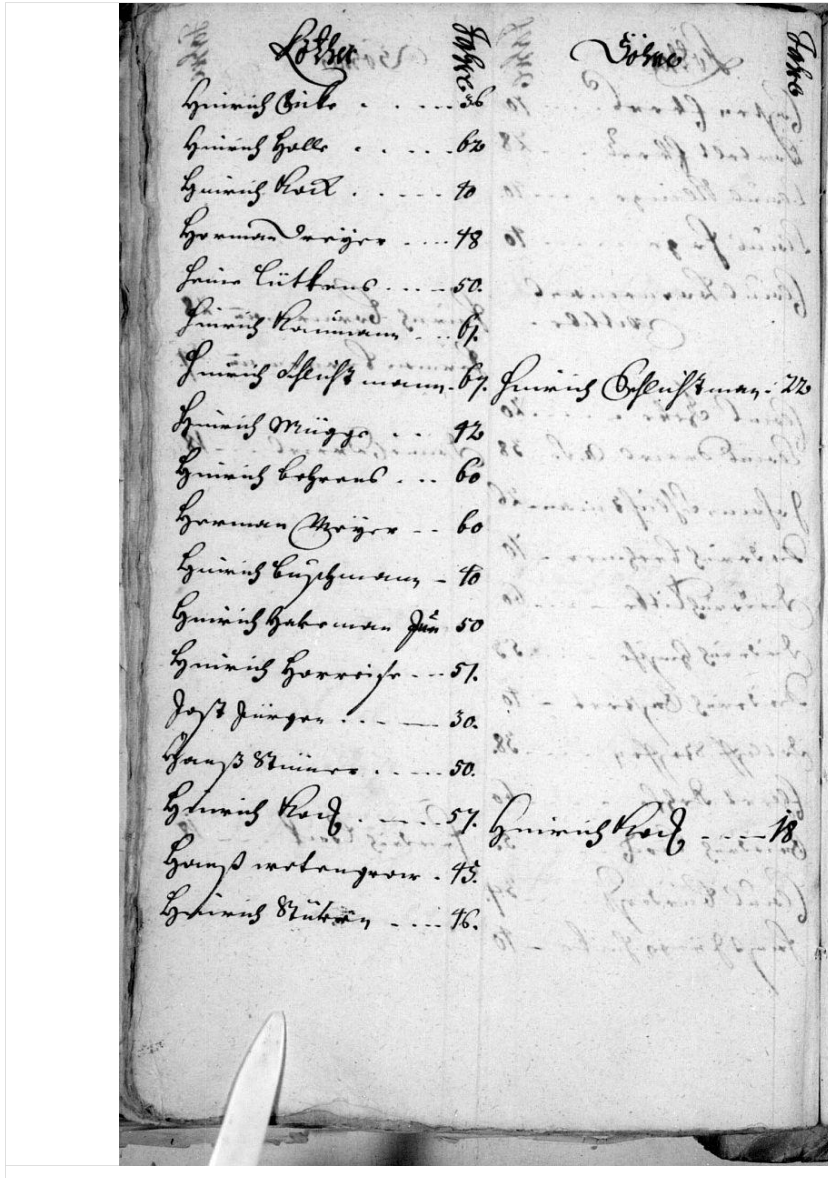 Jahre Söhne Jahre
Hinrich Ficke . . . . . 36
Hinrich Holle . . . . . 62
Hinrich Kock . . . . . 40
Herman Dreÿer . . . . 48
Hein Lütkens . . . . 50.
Hinrich Kaumann . . 61.
Hinrich Schlichtmann . 67. Hinrich Schlichtman . 22
Hinrich Müggo . . . 42
Hinrich Behrens . . . 60
Herman Meÿer . . 60
Hinrich Buschmann - 40
Hinrich Hakeman Jun 50
Hinrich . . . 51.
Jost Jürgen . . . 30.
Hanß . . . . 50.
Hinrich Kock . . . . 57. Hinrich Kock . . . . 18
Hanß wetengrow . 45.
Hinrich Stüven . . . . 46.